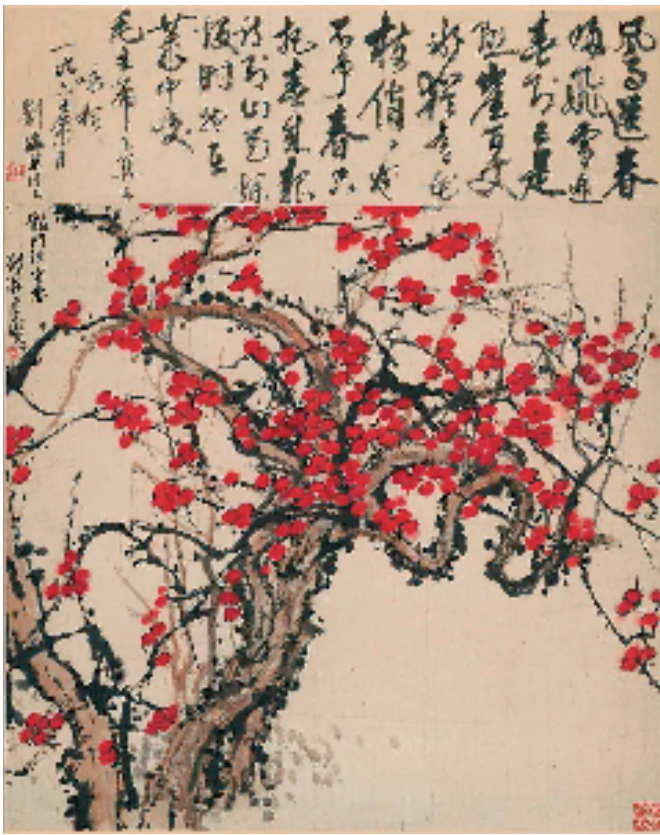 风雨送春
歸飛雪迎
春到已是
懸崖百丈
冰猶有花
枝俏〻也
不争春只
把春来報
待到山花爛
漫時她在
叢中笑
毛主席卜算子
咏梅
一九六年月
劉海粟